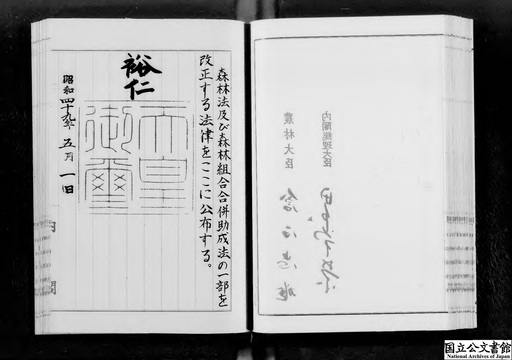 森林法及び森林組合合併助成法の一部を
改正する法律をここに公布する。
裕仁
天皇
御璽
昭和四十九年五月一日
内閣
内閣総理大臣
農林大臣
国立公文書館
National Archives of Japan